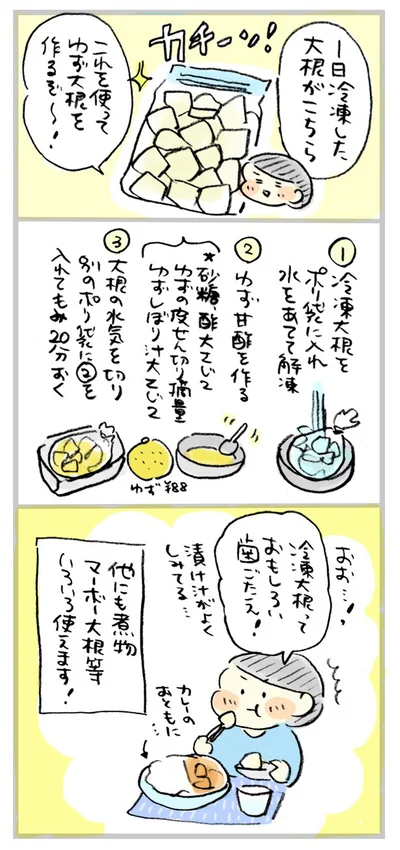 1日冷凍した
大根がこちら
カチーッ!
これを使って
ゆず大根を
作るぞ〜!
①
冷凍大根を
ポリ袋に入れ
水をあてて解凍
②
ゆず甘酢を作る
*砂糖、酢大さじ2
ゆずの皮せん切り摘量
ゆずしぼり汁大さじ2
③
大根の水気を切り
別のポリ袋に②を
入れてもみ20分おく
ゆず¥88
おお…!
冷凍大根って
おもしろい
歯ごたえ!
漬け汁がよく
しみてる…
カレーの
おともに…
他にも煮物
マーボー大根等
いろいろ使えます!